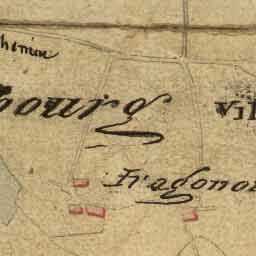 hemin
bourg
Vil
Fragonor